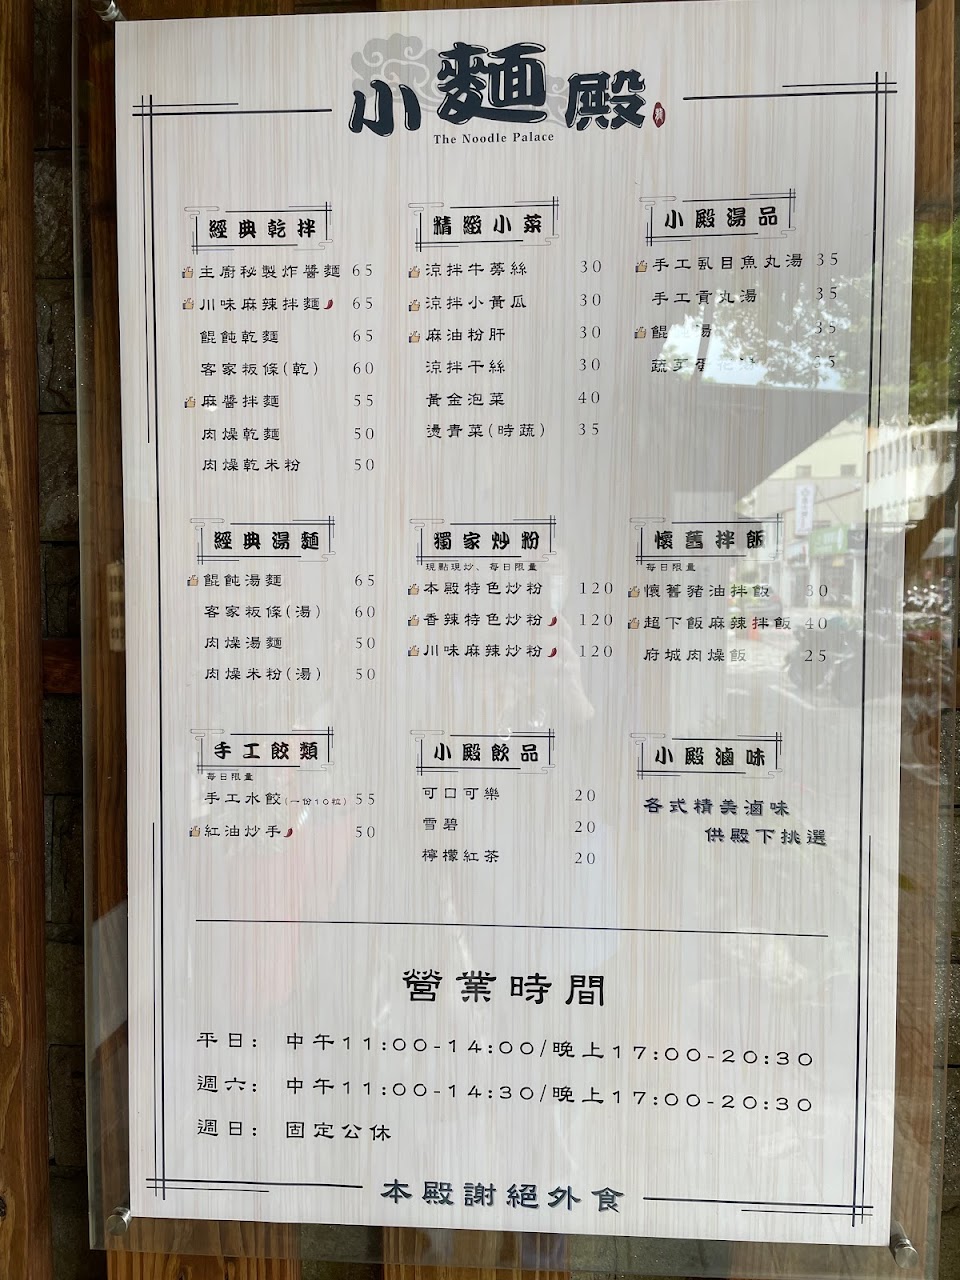 小麵殿
The Noodle Palace
經典乾拌
主廚秘製炸醬麵 65
川味麻辣拌麵 65
餛飩乾麵 65
客家粄條(乾) 60
麻醬拌麵 55
肉燥乾麵 50
肉燥乾米粉 50
精緻小菜
涼拌牛蒡絲 30
涼拌小黃瓜 30
麻油粉肝 30
涼拌干絲 30
黃金泡菜 40
燙青菜(時蔬) 35
小殿湯品
手工虱目魚丸湯 35
手工貢丸湯 35
餛 湯 35
蔬菜蛋花湯 35
經典湯麵
餛飩湯麵 65
客家粄條(湯) 60
肉燥湯麵 50
肉燥米粉(湯) 50
獨家炒粉
現點現炒、每日限量
本殿特色炒粉 120
香辣特色炒粉 120
川味麻辣炒粉 120
懷舊拌飯
每日限量
懷舊豬油拌飯 30
超下飯麻辣拌飯 40
府城肉燥飯 25
手工餃類
每日限量
手工水餃(一份10粒) 55
紅油炒手 50
小殿飲品
可口可樂 20
雪碧 20
檸檬紅茶 20
小殿滷味
各式精美滷味
供殿下挑選
營業時間
平日: 中午11:00-14:00/晚上17:00-20:30
週六: 中午11:00-14:30/晚上17:00-20:30
週日: 固定公休
本殿謝絕外食